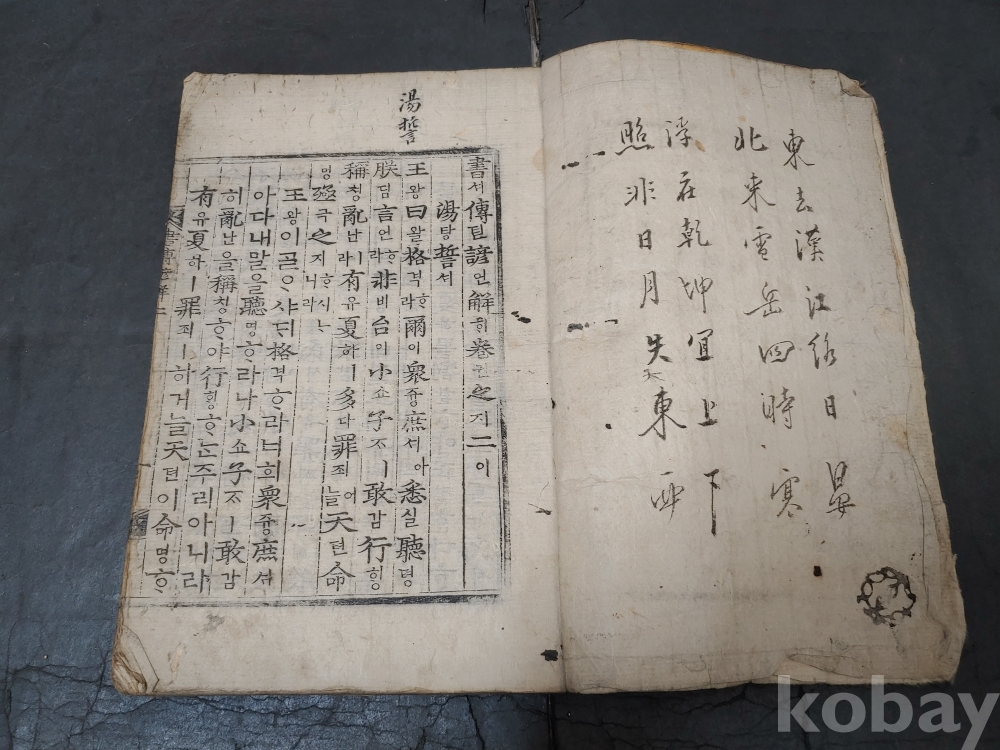 東去漢江 日
北來雪岳四時寒
浮在乾坤宜上下
照非日月失東西
湯誓
書셔傳뎐諺언解ᄒᆡ卷권之지二이
湯탕誓셔
王왕曰왈格격ᄒᆞ라爾이衆즁庶셔아悉실聽텽
朕딤言언ᄒᆞ라非비台이小쇼子ᄌᆞㅣ敢감行ᄒᆡᆼ
稱칭亂난이라有유夏하ㅣ多다罪죄어늘天텬命
명殛극之지ᄒᆞ시ᄂᆞ니라
王왕이ᄀᆞᆯᄋᆞ샤ᄃᆡ格격ᄒᆞ라너희衆즁庶셔
아다내말을聽텽ᄒᆞ라나小쇼子ᄌᆞㅣ敢감
히亂난을稱칭ᄒᆞ야行ᄒᆡᆼᄒᆞᄂᆞᆫ주리아니라
有유夏하ㅣ罪죄ㅣ하거늘天텬이命명ᄒᆞ
kobay